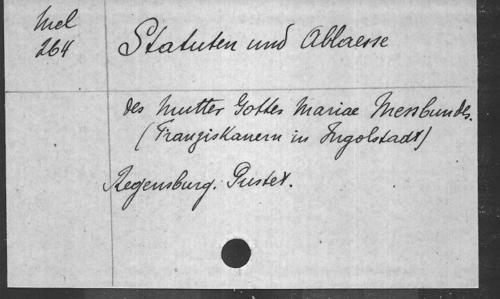 Mel
264
Statuten und Ablaesse
des Mutter Gottes Mariae Messbundes.
(Franziskanern in Ingolstadt)
Regensburg. Pustet.